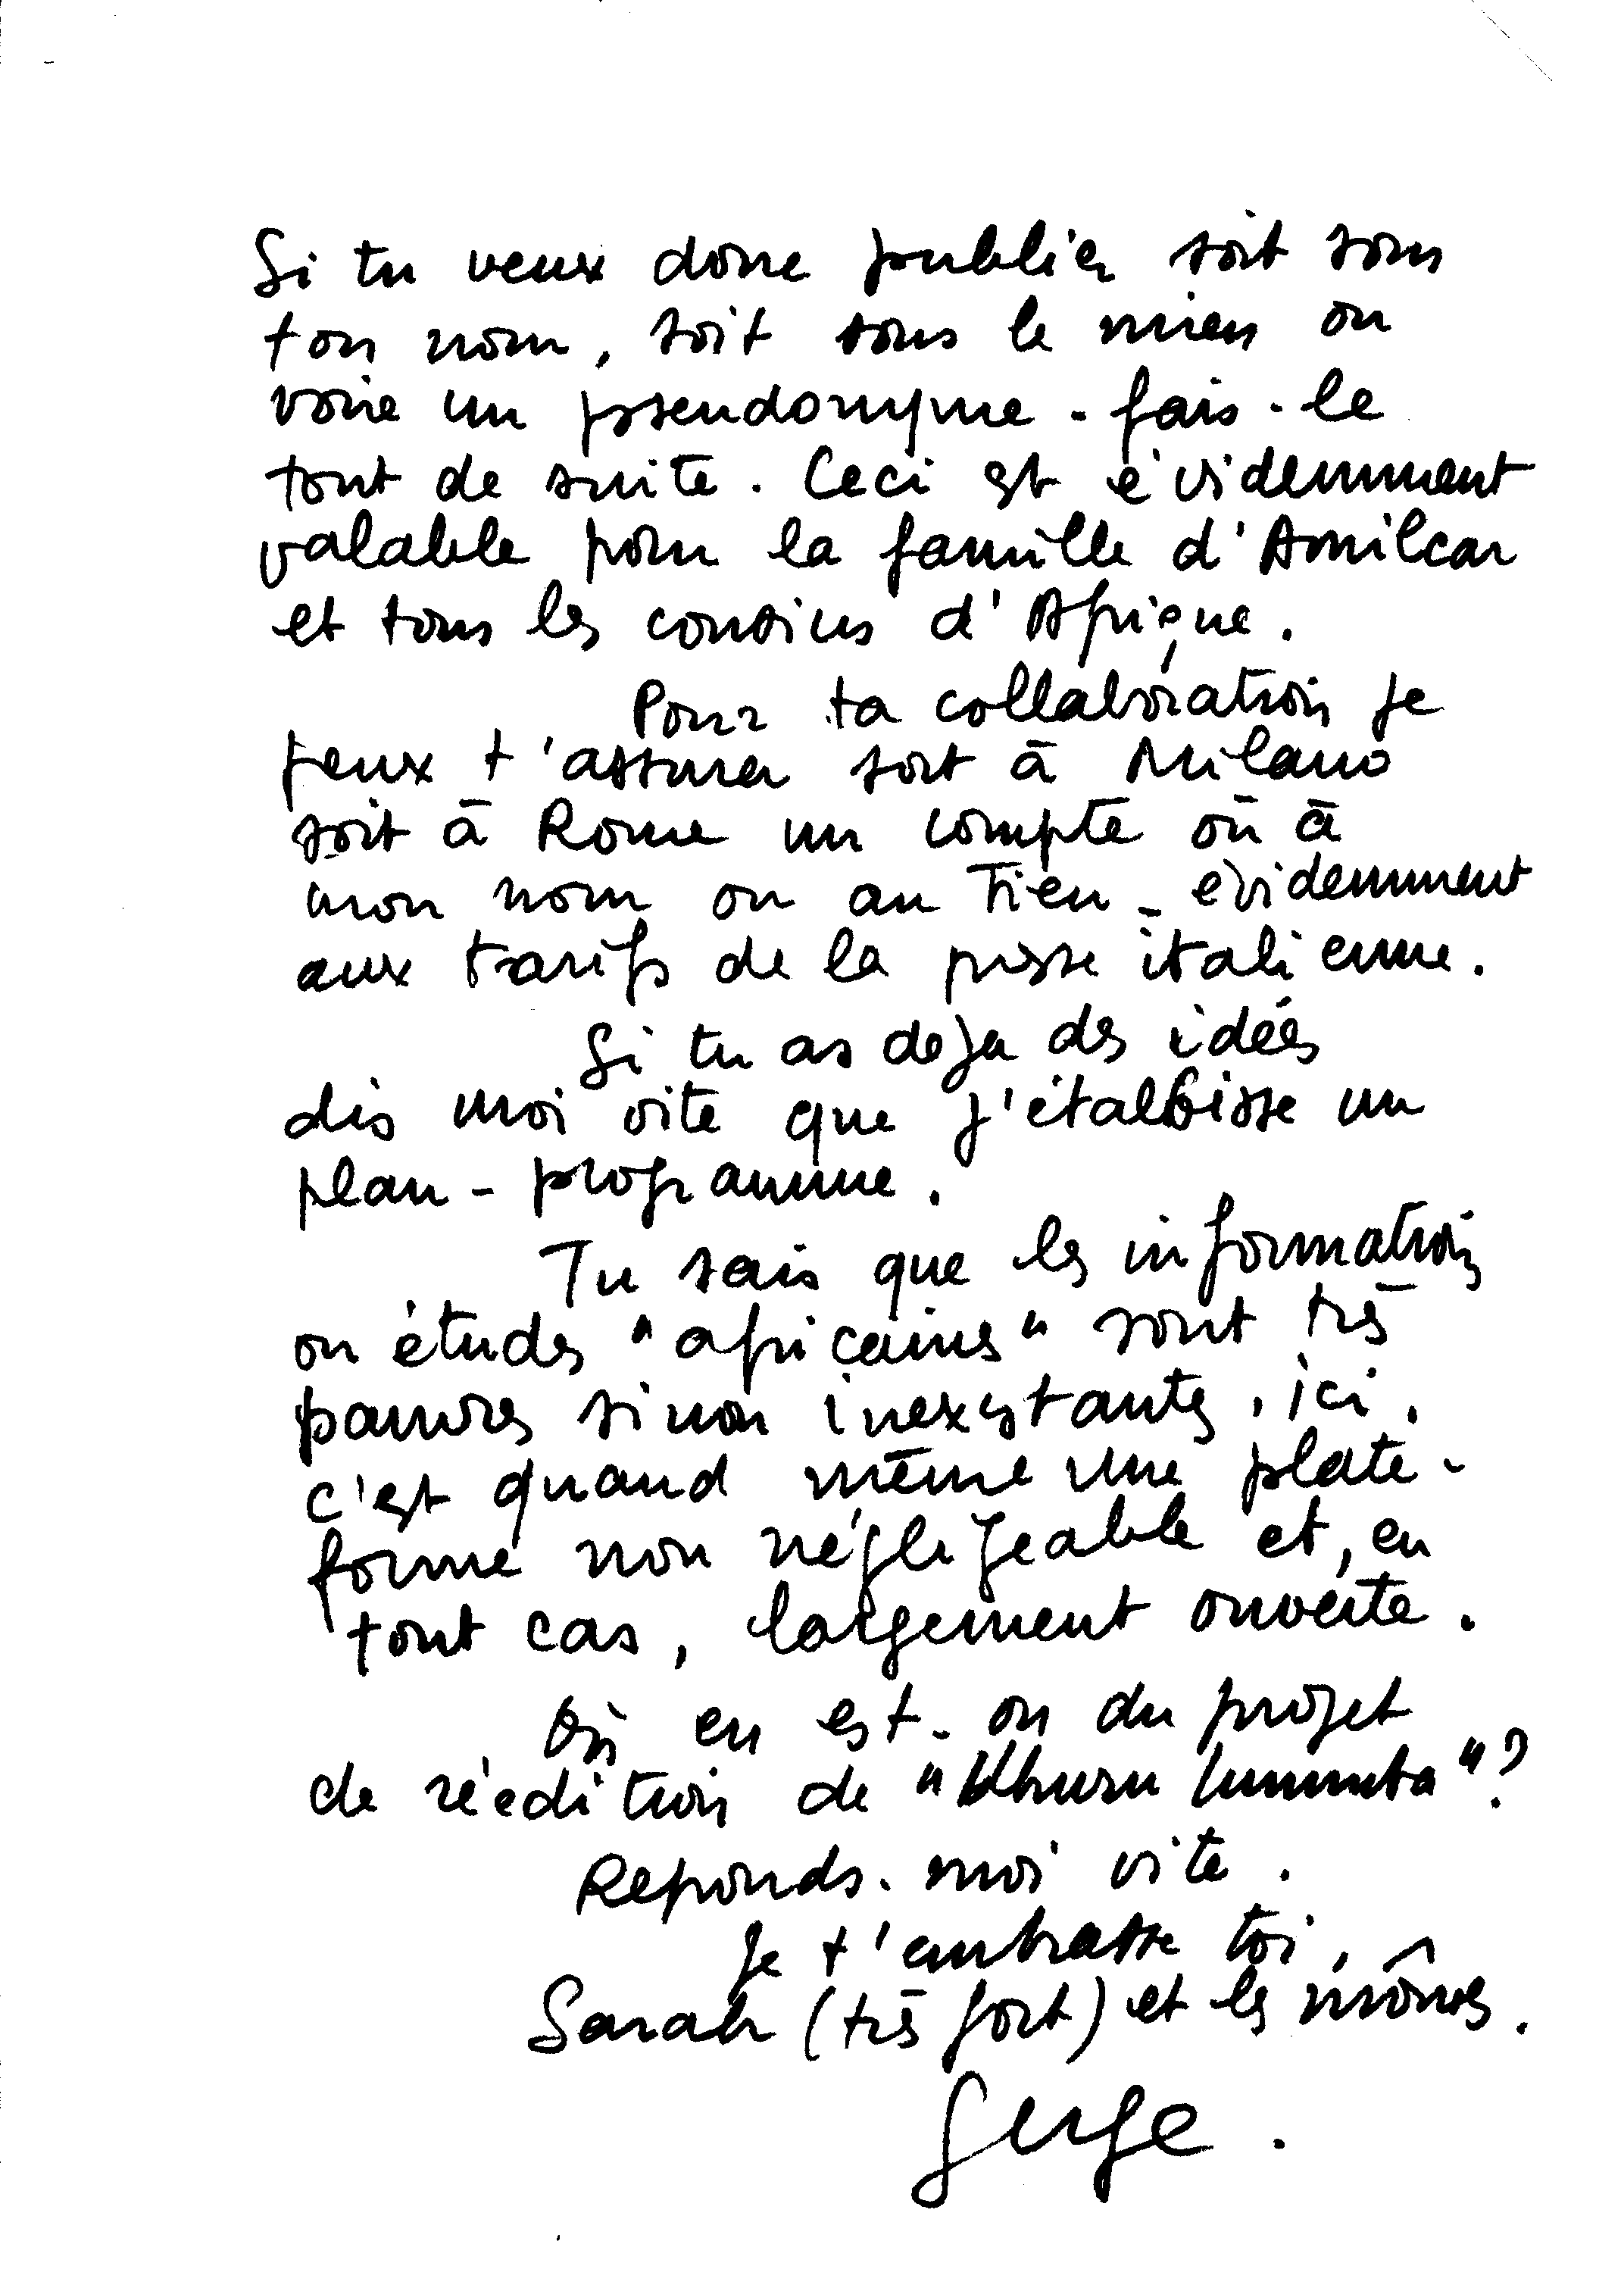 Si tu veux donc publier soit sous
ton nom, soit sous le mien ou
voire un pseudonyme - fais-le
tout de suite. Ceci est évidemment
valable pour la famille d'Amilcar
et tous les cousins d'Afrique.
Pour ta collaboration je
peux t'assurer soit à Milano
soit à Rome un compte où à
mon nom ou au Tien - evidemment
aux tarifs de la presse italienne.
Si tu as deja des idées
dis moi vite que j'établisse un
plan - programme.
Tu sais que les informations
ou études "africaines" sont très
pauvres sinon inexistantes, ici.
C'est quand même une plate-
forme non négligeable et, en
tout cas, largement ouverte.
Où en est-on du projet
de réédition de "Uhuru Lumumba"?
Reponds-moi vite.
Je t'embrasse toi,
Sarah (très fort) et les mômes.
Serge.